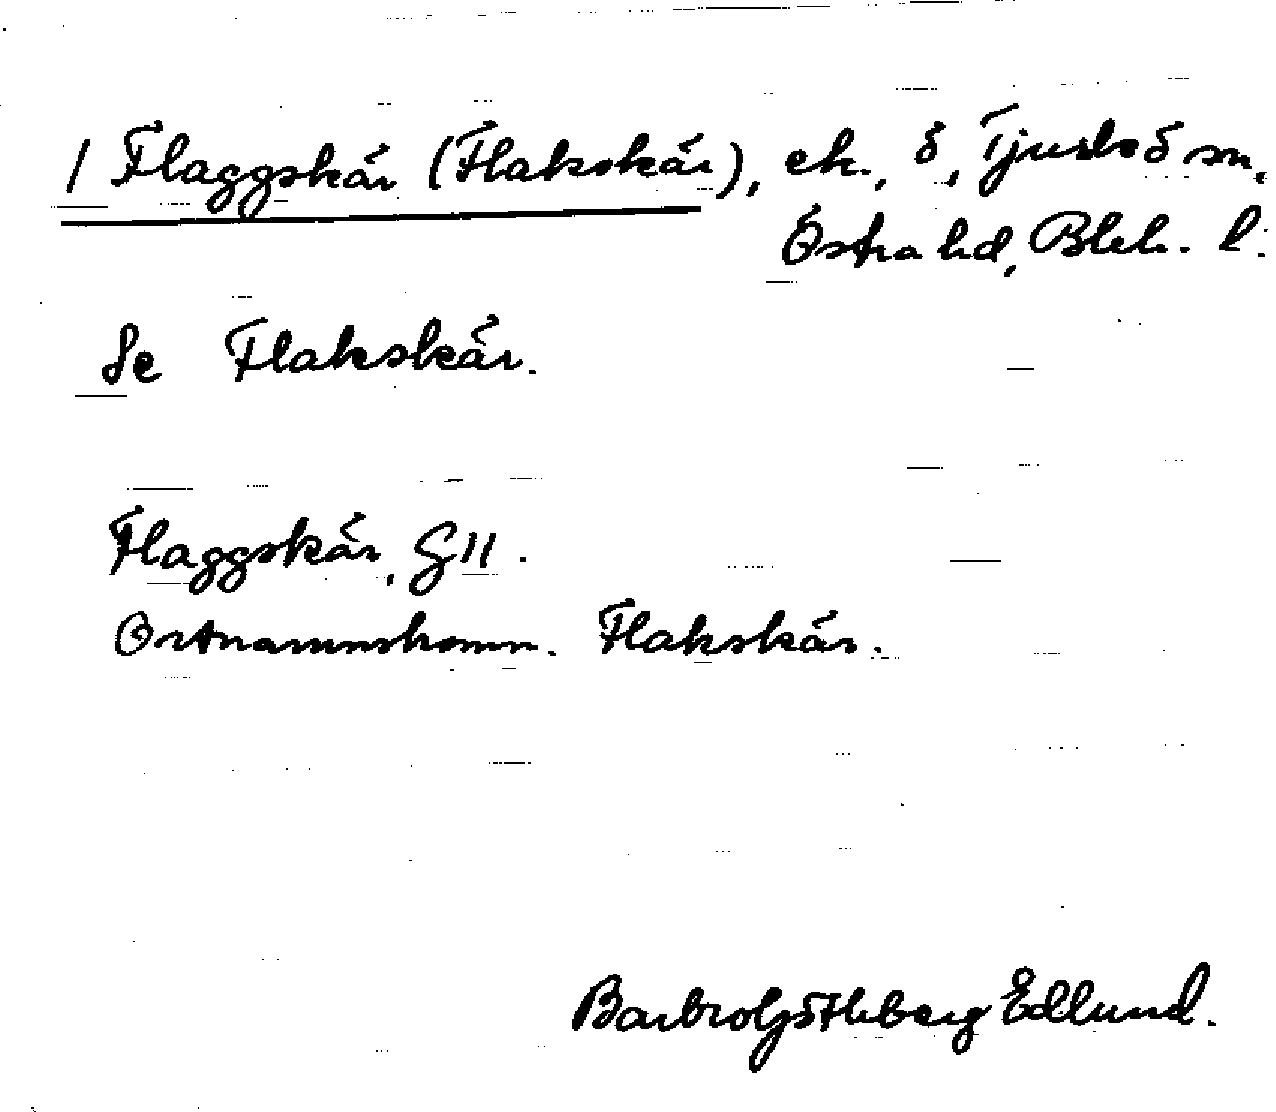 / Flaggskär (Flakskär), ek., ö, Tjurkö sn,
Östra hd, Blek. l.
Se Flakskär.
Flaggskär, G11.
Ortnamnskomm. Flakskär.
Barbro Göthberg Edlund.